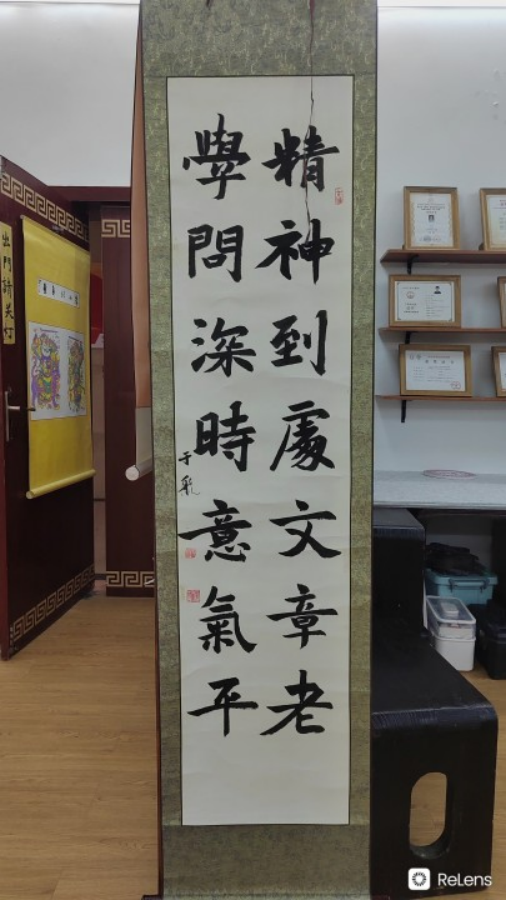 精神到處文章老
學問深時意氣平
出門請关灯
ReLens